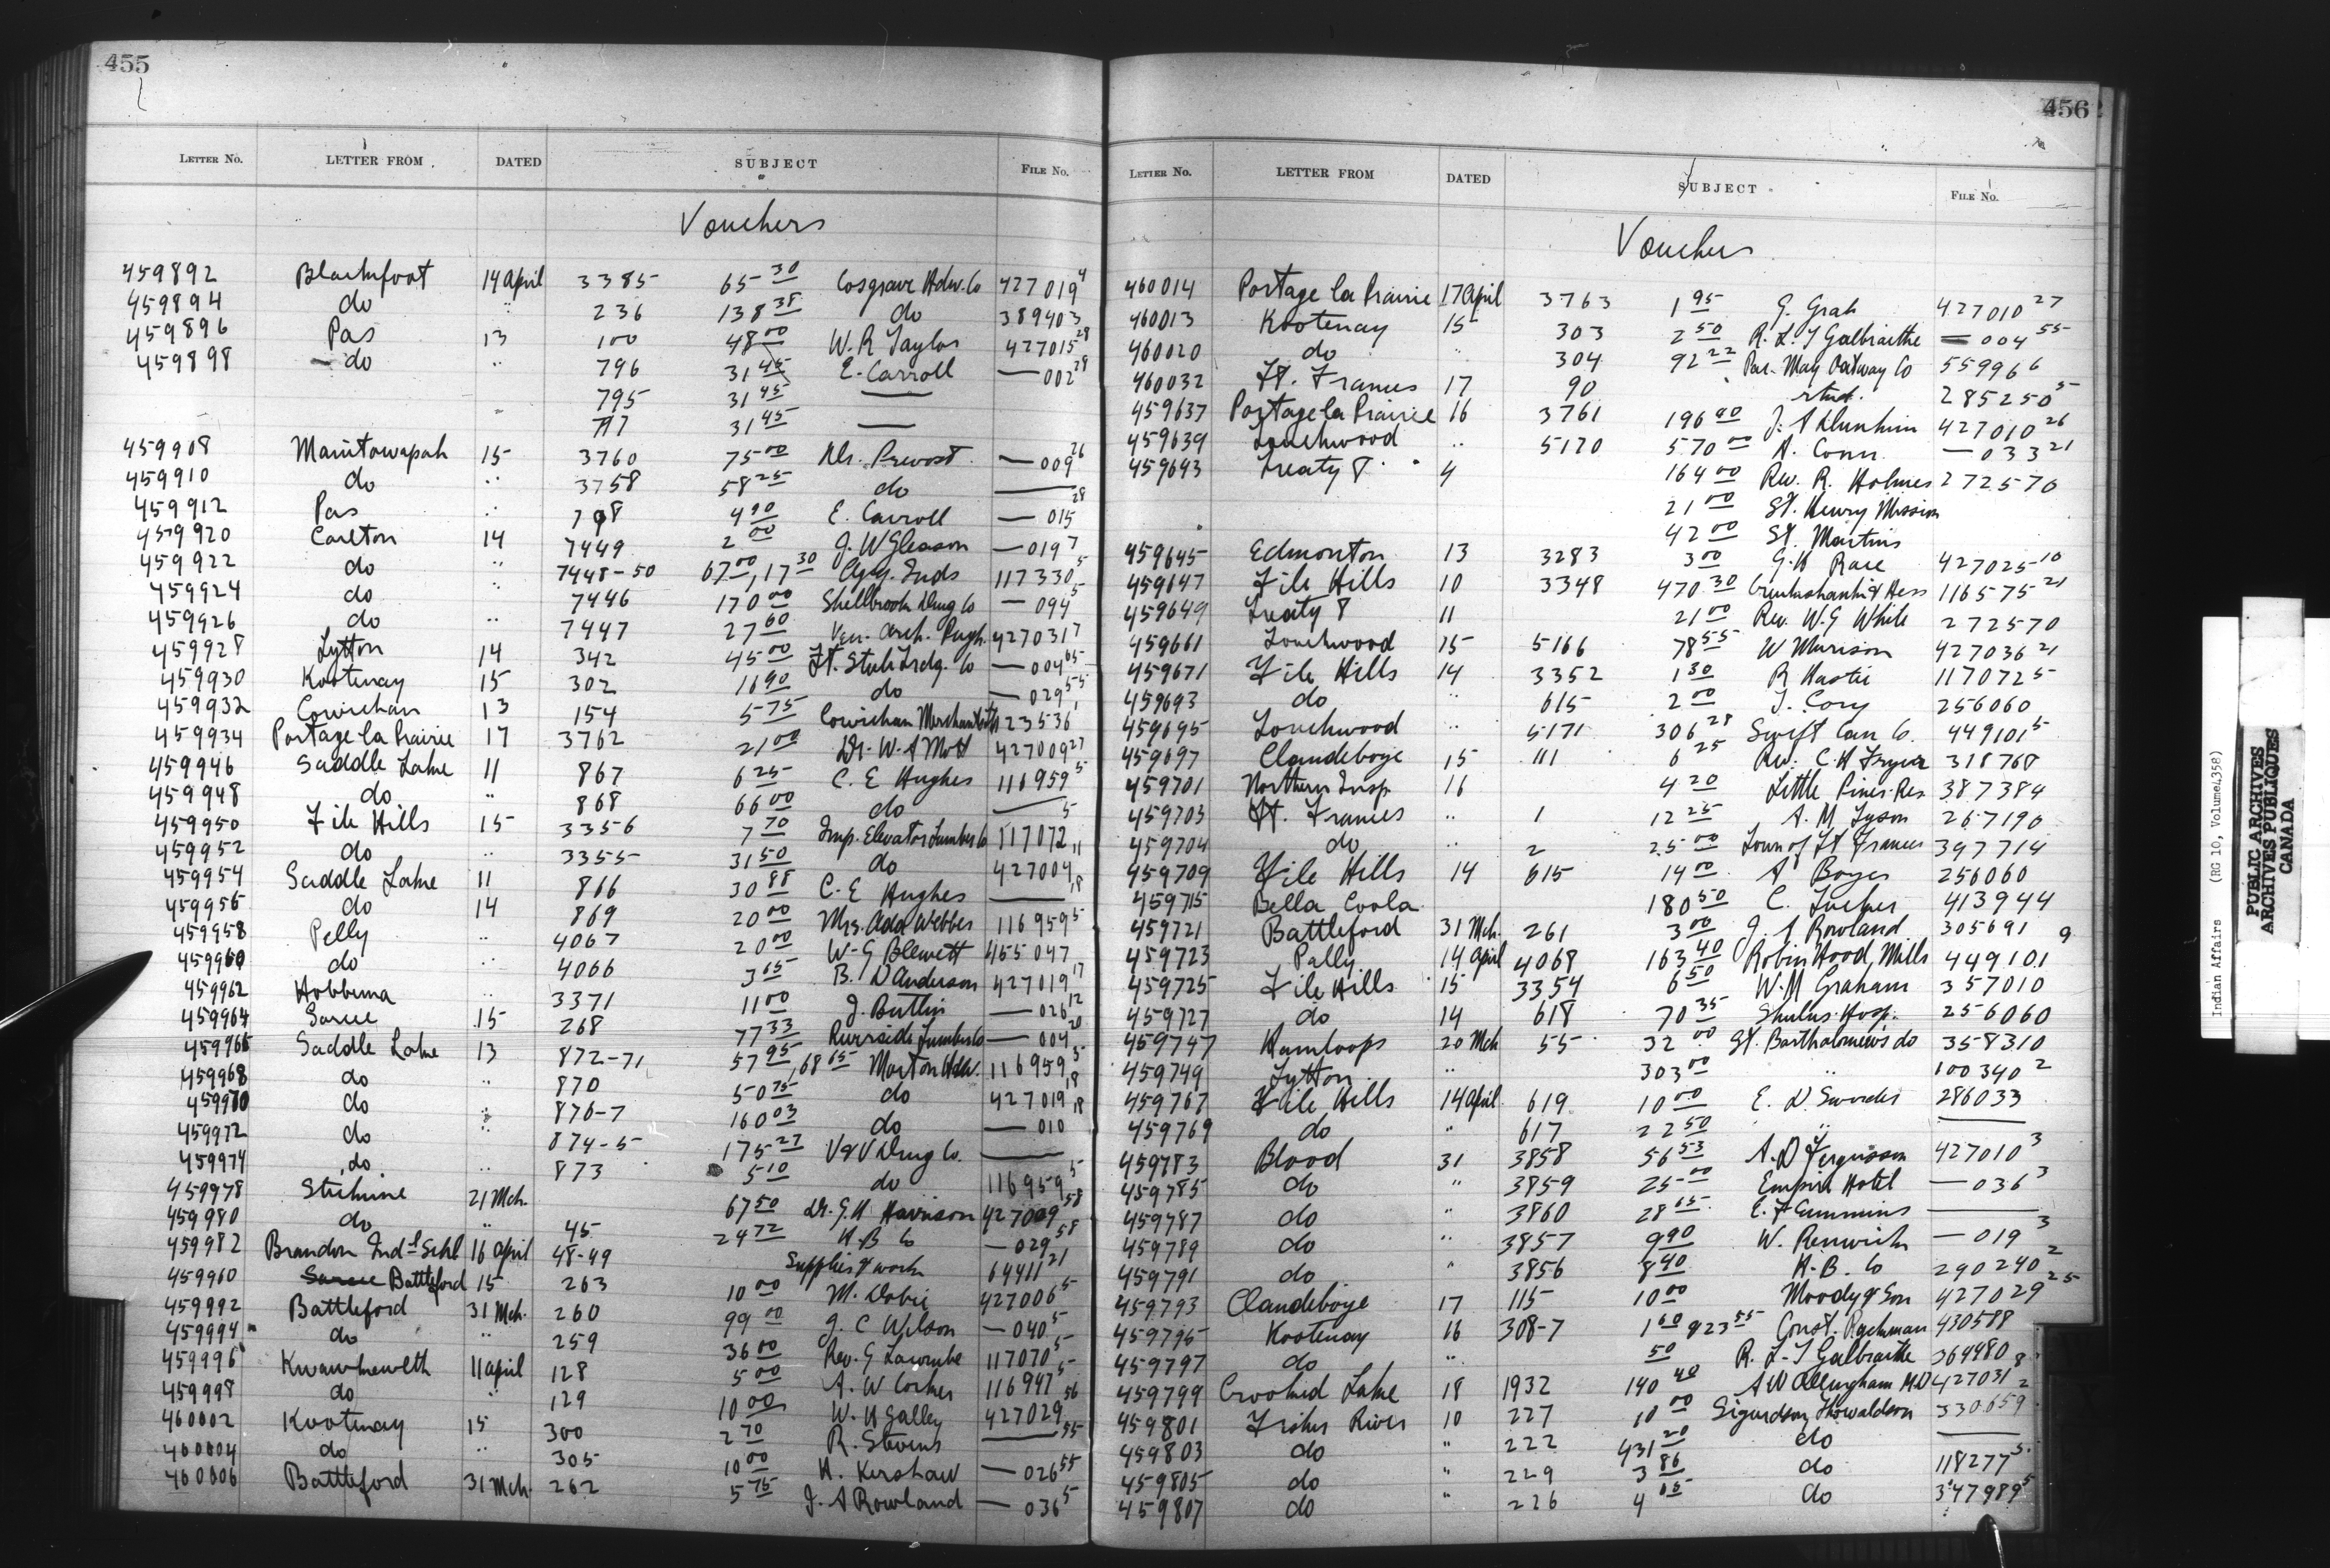 455
LETTER NO. LETTER FROM DATED SUBJECT FILE NO.
Vouchers
459892 Blackfoot 14 April 3385 65 30 Cosgrave Hdw. Co 427019 4
459894 do " 236 138 38 do 389403
459896 Pas 13 100 48 00 W. R Taylor 427015 28
459898 do " 796 31 45 E. Carroll — 002 28
795 31 45 —
" 797 31 45 —
459908 Manitowapah 15 3760 75 00 Dr. Prevost — 009 26
459910 do " 3758 58 25 do —
459912 Pas " 798 4 90 E. Carroll — 015 28
459920 Carlton 14 7449 2 00 J. W Gleason — 019 7
459922 do " 7448-50 67 00, 17 30 Agg. Inds 117330 5
459924 do " 7446 170 00 Shellbrook Drug Co — 094 5
459926 do " 7447 27 60 Ven. Arch. 427031 7
459928 Lytton 14 342 45 00 Ft. Trdg. Co — 004 65
459930 Kootenay 15 302 16 90 do — 029 55
459932 Cowichan 13 154 5 75 Cowichan 123536 1
459934 Portage la Prairie 17 3762 21 00 Dr. W. A Mott 427009 27
459946 Saddle Lake 11 867 6 25 C. E Hughes 116959 5
459948 do " 868 66 00 do — 5
459950 File Hills 15 3356 7 70 Imp. Elevator Lumber Co 117072
459952 do " 3355 31 50 do 427004 11
459954 Saddle Lake 11 866 30 88 C. E Hughes — 18
459956 do 14 869 20 00 Mrs. Ada Webber 116959 5
459958 Pelly " 4067 20 00 W. G Blewett 455047
459960 do " 4066 3 65 B. D Anderson 427019 17
459962 Hobbema " 3371 11 00 J. Butlin — 026 12
459964 Sarcee 15 268 77 33 Riverside Lumber Co — 004 20
459966 Saddle Lake 13 872-71 57 95, 68 65 Morton Hdw. 116959 5
459968 do " 870 50 75 do 427019 18
459970 do " 876-7 160 03 do — 010 18
459972 do " 874-5 175 27 V & V Drug Co. —
459974 do " 873 5 10 do 116959 5
459978 Stikine 21 Mch. 67 50 Dr. G. H Harrison 427009 58
459980 do " 45 24 72 H. B Co — 029 58
459982 Brandon Indl Schl 16 April 48-49 Supplies & work 64411 21
459960 Sarcee Battleford 15 263 10 00 M. Dobie 427006 5
459992 Battleford 31 Mch. 260 99 00 J. C Wilson — 040 5
459994 do " 259 36 00 Rev. G Lacombe 117070 5
459996 Kwawkewelth 11 April 128 5 00 A. W Corker 116947 5
459998 do " 129 10 00 W. H Galley 427029 56
460002 Kootenay 15 300 2 70 R. Stevens — 55
460004 do " 305 10 00 H. Kershaw — 026 55
460006 Battleford 31 Mch. 262 5 75 J. A Rowland — 036 5
456
LETTER NO. LETTER FROM DATED SUBJECT FILE NO.
Vouchers
460014 Portage la Prairie 17 April 3763 1 95 G. Grah 427010 27
460013 Kootenay 15 303 2 50 R. L. T Galbraithe — 004 55
460020 do " 304 92 22 Par. Oatway Co 559966
460032 Ft. Frances 17 90 285250 5
459637 Portage la Prairie 16 3761 196 90 J. A 427010 26
459639 Touchwood " 5170 570 00 A. Conn — 033 21
459643 Treaty 8 4 164 00 Rev. R. Holmes 272570
21 00 St. Henry Mission
42 00 St. Martins
459645 Edmonton 13 3283 3 00 G. H Race 427025 10
459647 File Hills 10 3348 470 30 Cruikshank & Hess 116575 21
459649 Treaty 8 11 21 00 Rev. W. G White 272570
459661 Touchwood 15 5166 78 55 W Murison 427036 21
459671 File Hills 14 3352 1 30 R Hastie 117072 5
459693 do " 615 2 00 T. Cory 256060
459695 Touchwood " 5171 306 28 Swift Can Co. 449101 5
459697 Clandeboye 15 111 6 25 Rev. C. H Fryer 318768
459701 Northern Insp. 16 4 20 Little Pines Res 387384
459703 Ft. Frances " 1 12 25 A. M Tyson 267190
459704 do " 2 25 00 Town of Ft Frances 397714
459709 File Hills 14 615 14 00 A Boyer 256060
459715 Bella Coola 180 50 C. Tucker 413944
459721 Battleford 31 Mch. 261 3 00 J. A Rowland 305691
459723 Pelly 14 April 4068 163 40 Robin Hood Mills 449101 9
459725 File Hills 15 3354 6 50 W. M Graham 357010
459727 do 14 618 70 35 Shulus Hosp. 256060
459747 Kamloops 20 Mch 55 32 00 St. Bartholomew's do 358310
459749 Lytton " 303 00 " 100340 2
459767 File Hills 14 April 619 10 00 E. D. Sworder 286033
459769 do " 617 22 50 " —
459783 Blood 31 3858 56 53 A. D Fergusson 427010 3
459785 do " 3859 25 00 Empire Hotel — 036 3
459787 do " 3860 28 65 E. F Cummins —
459789 do " 3857 9 90 W. Renwick — 019 3
459791 do " 3856 8 40 H. B. Co 290240 2
459793 Clandeboye 17 115 10 00 Moody & Son 427029 25
459795 Kootenay 16 308-7 1 60 923 55 Const. 430588
459797 do " 50 R. L. T Galbraithe 364480
459799 Crooked Lake 18 1932 140 40 A W Allingham M.D 427031 8
459801 Fisher River 10 227 10 00 Sigurdson Thowaldson 330659 2
459803 do " 222 431 20 do —
459805 do " 229 3 86 do 118277 5
459807 do " 226 4 05 do 347989 5
Indian Affairs (RG 10, Volume 4358)
PUBLIC ARCHIVES
ARCHIVES PUBLIQUES
CANADA